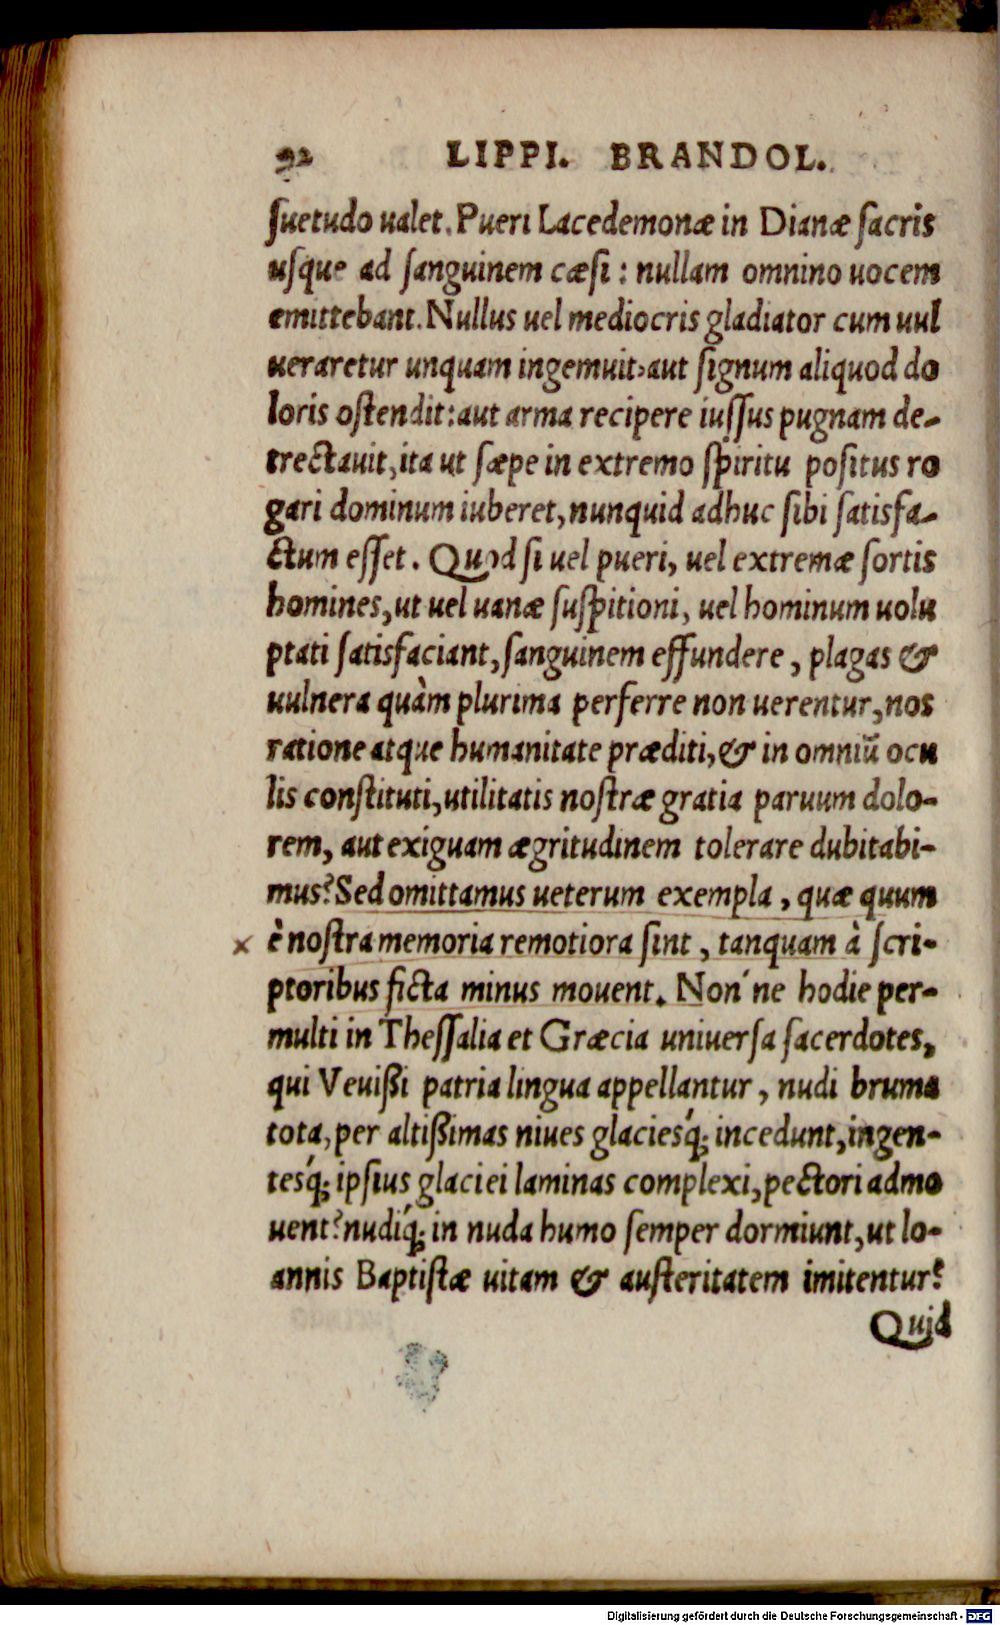 92 LIPPI. BRANDOL.
ſuetudo ualet. Pueri Lacedemonæ in Dianæ ſacris
uſque ad ſanguinem cæſi : nullam omnino uocem
emittebant. Nullus uel mediocris gladiator cum uul
ueraretur unquam ingemuit, aut ſignum aliquod do
loris oſtendit: aut arma recipere iuſſus pugnam de-
trectauit, ita ut ſæpe in extremo ſpiritu poſitus ro
gari dominum iuberet, nunquid adhuc ſibi ſatisfa-
ctum eſſet. Quod ſi uel pueri, uel extremæ ſortis
homines, ut uel uanæ ſuſpitioni, uel hominum uolu
ptati ſatisfaciant, ſanguinem effundere, plagas &
uulnera quàm plurima perferre non uerentur, nos
ratione atque humanitate præditi, & in omniū ocu
lis conſtituti, utilitatis noſtræ gratia paruum dolo-
rem, aut exiguam ægritudinem tolerare dubitabi-
mus? Sed omittamus ueterum exempla, quæ quum
x è noſtra memoria remotiora ſint, tanquam à ſcri-
ptoribus ficta minus mouent. Non´ne hodie per-
multi in Theſſalia et Græcia uniuerſa ſacerdotes,
qui Veuißi patria lingua appellantur, nudi bruma
tota, per altißimas niues glaciesq́; incedunt, ingen-
tesq́; ipſius glaciei laminas complexi, pectori admo
uent? nudiq́; in nuda humo ſemper dormiunt, ut Io-
annis Baptiſtæ uitam & auſteritatem imitentur?
Quid
Digitalisierung gefördert durch die Deutsche Forschungsgemeinschaft - DFG